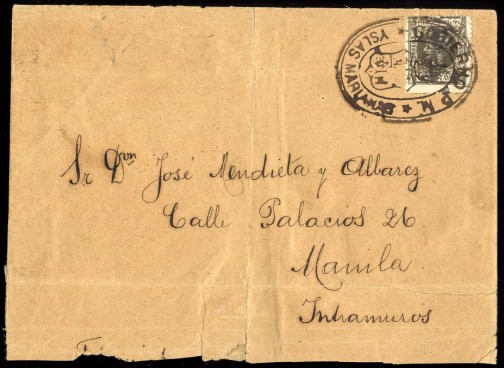 GOBIERNO P. M.
YSLAS MARIANAS
Sr Dⁿ José Mendieta y Albarez
Calle Palacios 26
Manila
Intramuros